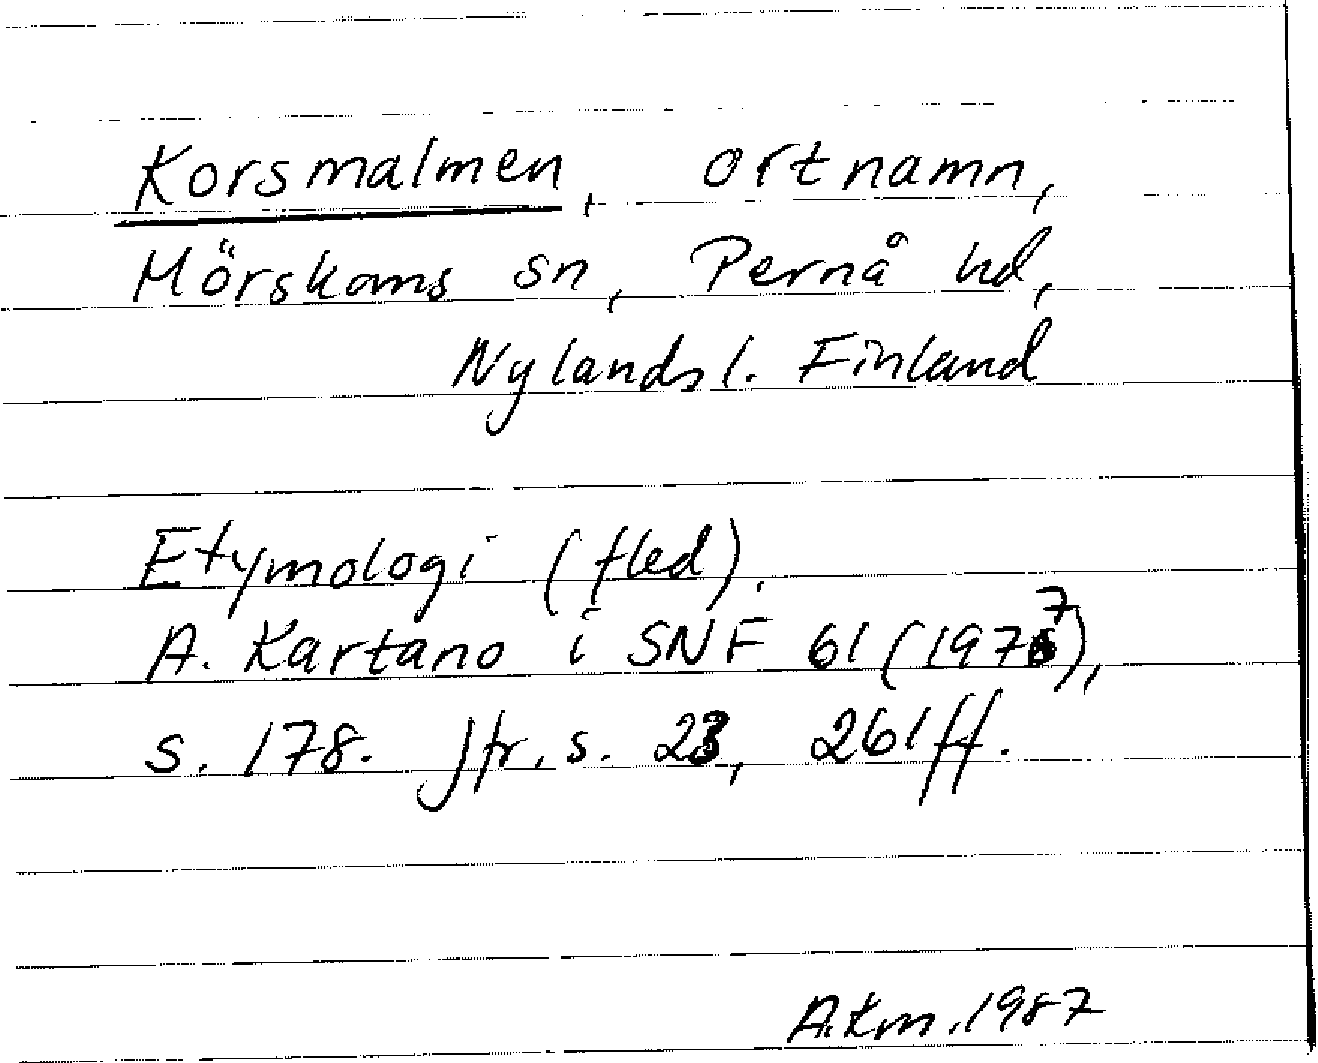 Korsmalmen, ortnamn,
Mörskoms sn, Pernå hd,
Nylands l. Finland
Etymologi (fled).
A. Kartano i SNF 61 (1977),
s. 178. Jfr. s. 23, 261 ff.
A.Km. 1987